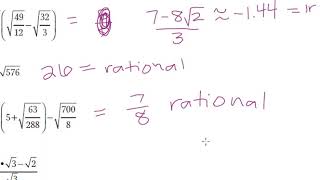 (√49/12 − √32/3) = 7−8√2/3 ≈ −1.44 = ir
√576 26 = rational
(5+√63/288) − √700/8 = 7/8 rational
•√3−√2
√3